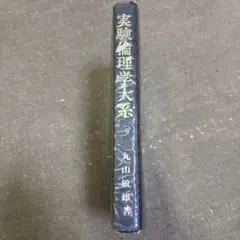 実験倫理学大系
丸山敏雄著